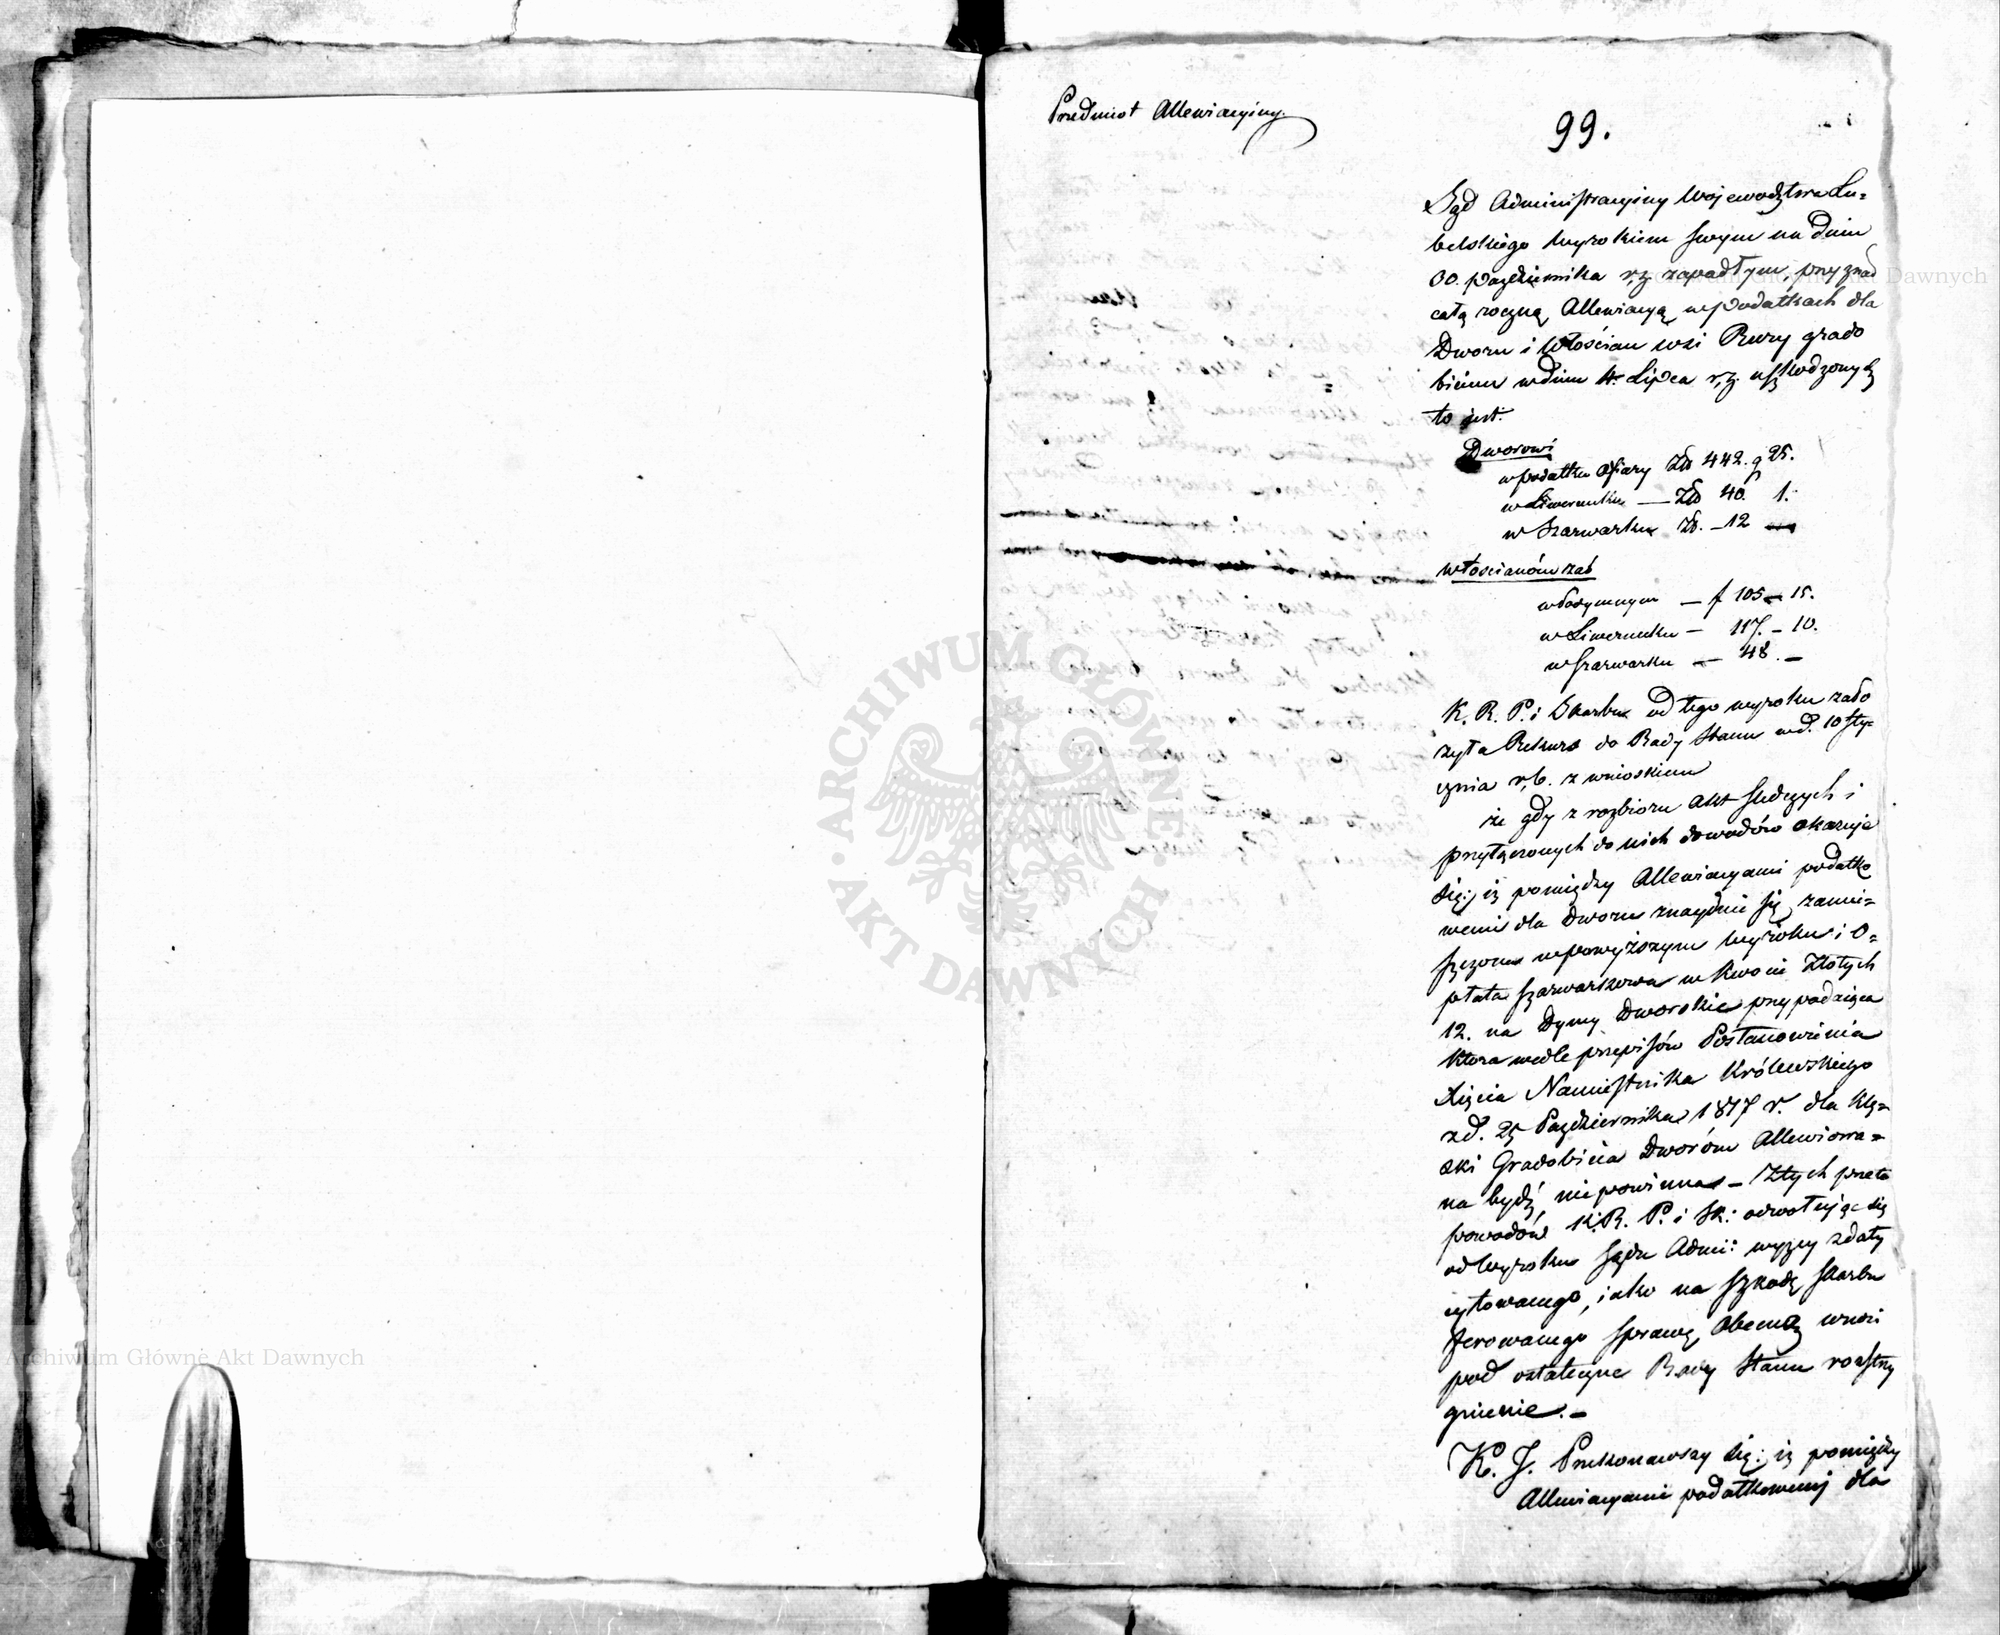 Przedmiot Allewiacyiny.
99.
Sąd Administracyiny Województwa Lu=
belskiego wyrokiem swym na dniu
30. Października r, z, zapadłym, przyznał
całą roczną Allewiacyą w podatkach dla
Dworu i Włościan wsi Rury grado
biciem w dniu 4. Lipca r, z. uszkodzonych
to jest:
Dworowi
w podatku Ofiary Zł 442. g 25.
w Liwerunku — Zł 40. 1.
w Szarwarku Zł. — 12 —
Włoscianom zaś
w Podymnym — f 105 — 15.
w Liwerunku — 117. — 10.
w Szarwarku — 48. —
K. R. P. i Skarbu od tego wyroku zało
żyła Rekurs do Rady Stanu w d. 10 Sty=
cznia r, b. z wnioskiem
że gdy z rozbioru Akt śledczych i
przyłączonych do nich dowodów okazuje
się; iż pomiędzy Allewiacyami podatko
wemi dla Dworu znayduie się zamie=
szczona w powyższym wyroku i O=
płata szarwarkowa w kwocie Złotych
12. na Dymy Dworskie przypadaiąca
ktora wedle przepisów Postanowienia
Xięcia Namiestnika Królewskiego
z d. 25 Października 1817 r. dla klę=
ski Gradobicia Dworóm Allewiowa=
na bydź nie powinna — Z tych przeto
powodów K. R. P. i Sk: odwołując się
od wyroku Sądu Admi: wyżey z daty
cytowanego, iako na szkodę Skarbu
ferowanego sprawę obecną wnosi
pod ostateczne Rady Stanu rozstrzy
gnienie. —
K. J. Przekonawszy się: iż pomiędzy
Allewiacyami podatkowemi dla
ARCHIWUM GŁÓWNE AKT DAWNYCH
Archiwum Główne Akt Dawnych